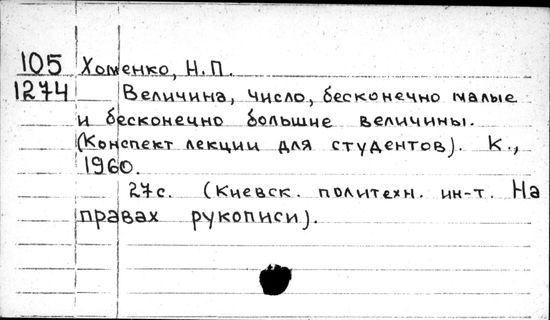 105 Хоменко, Н.П.
1274 Величина, число, бесконечно малые
и бесконечно большие величины.
(Конспект лекции для студентов). К.,
1960.
27с. (Киевск. политехн. ин-т. На
правах рукописи).